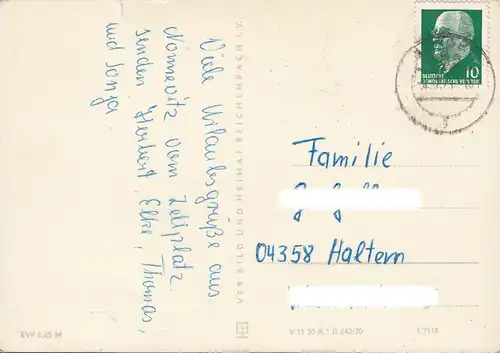 Viele Urlaubsgrüße aus
Nonnevitz vom Zeltplatz
senden Herbert, Elke, Thomas,
und Sonja
VEB BILD UND HEIMAT REICHENBACH I. V.
DEUTSCHE
DEMOKRATISCHE REPUBLIK
10
Familie
04358 Haltern
EVP 0,25 M
V 11 50 A 1 B 643/70
1/7118